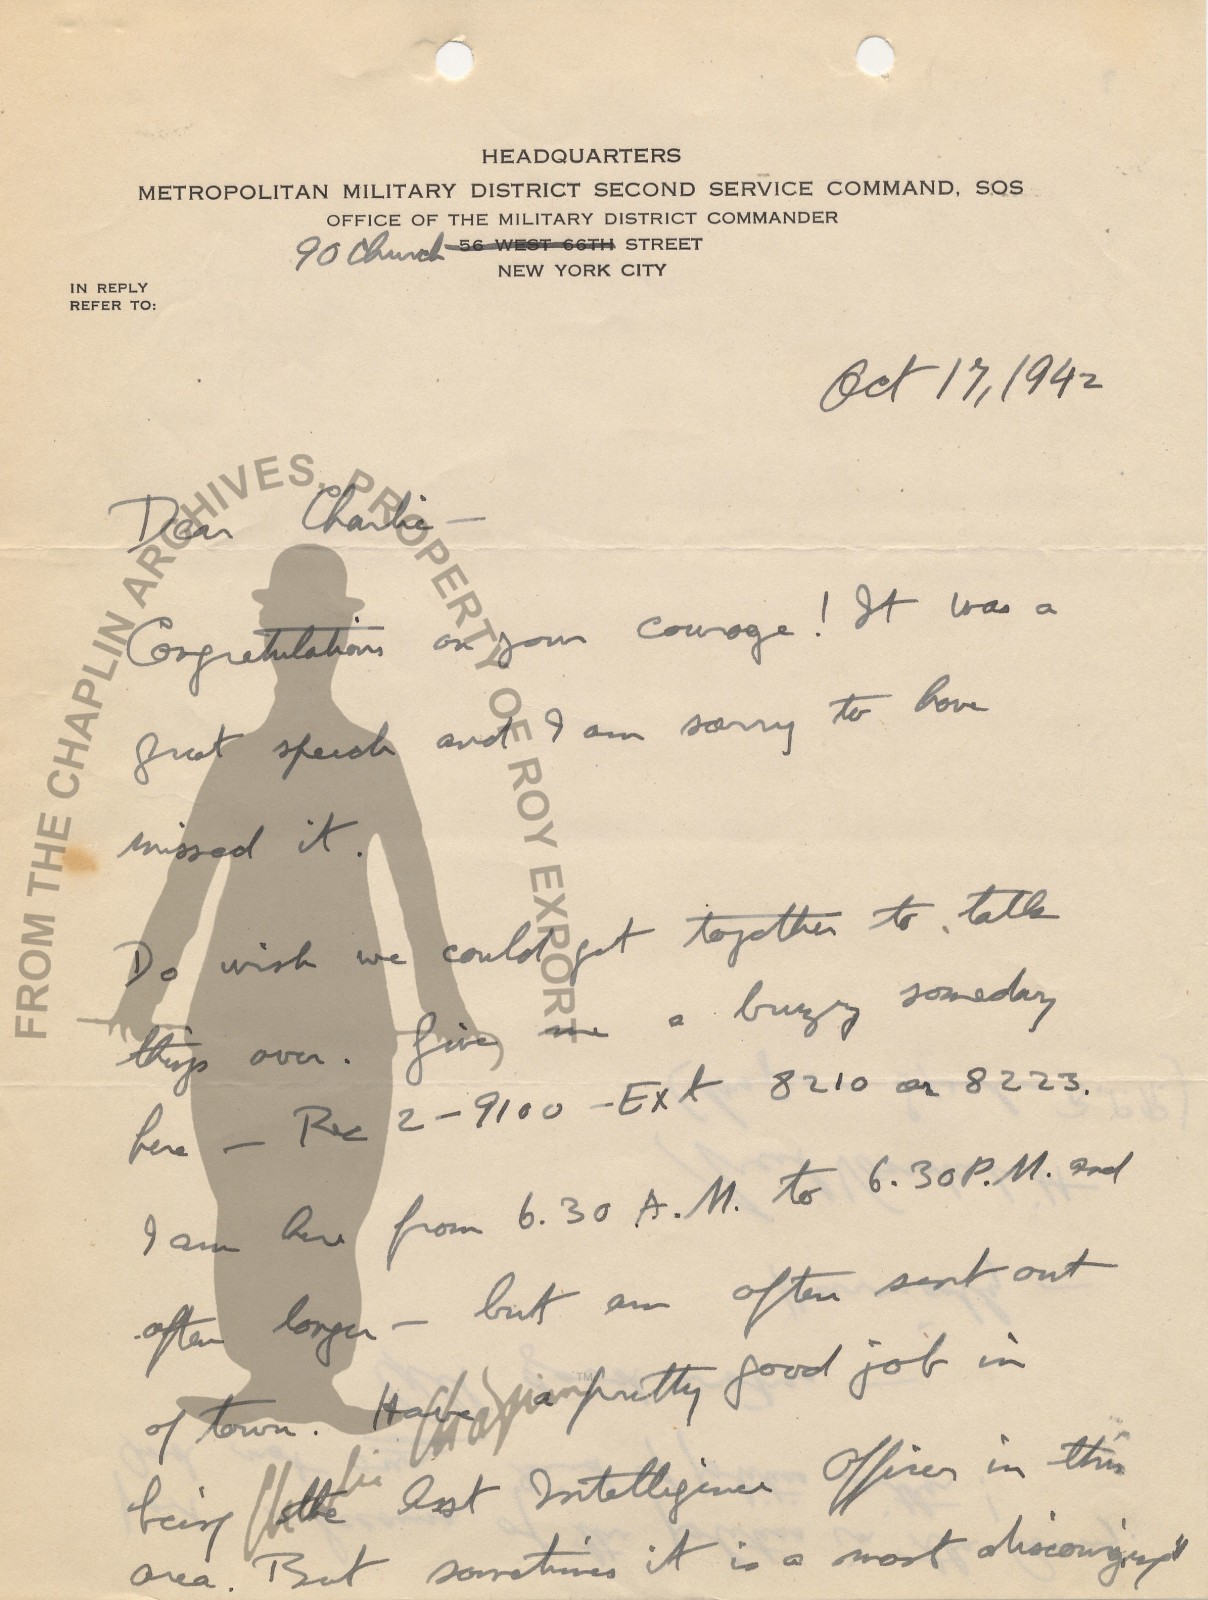 HEADQUARTERS
METROPOLITAN MILITARY DISTRICT SECOND SERVICE COMMAND, SOS
OFFICE OF THE MILITARY DISTRICT COMMANDER
90 Church 56 WEST 66TH STREET
NEW YORK CITY
IN REPLY
REFER TO:
Oct 17, 1942
FROM THE CHAPLIN ARCHIVES, PROPERTY OF ROY EXPORT
Dear Charlie —
Congratulations on your courage! It was a
great speech and I am sorry to have
missed it.
Do wish we could get together to talk
things over. Give me a buzz someday
here — Rec 2-9100 - Ext 8210 or 8223.
I am here from 6.30 A.M. to 6.30 P.M. and
often longer — but am often sent out
of town. Have a pretty good job in
being the Intelligence Officer in this
area. But sometimes it is a most
Charlie Chaplin TM